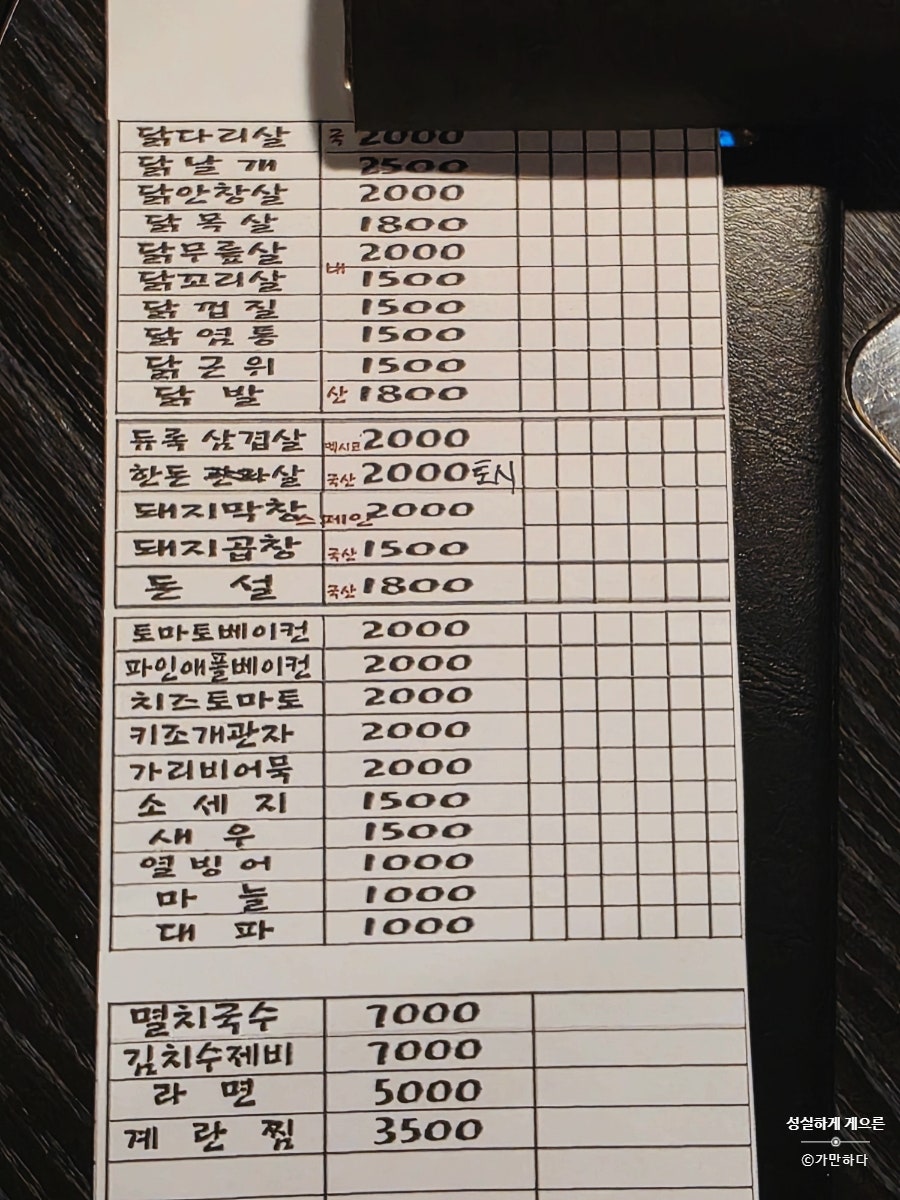 닭다리살 국 2000
닭날개 2500
닭안창살 2000
닭목살 1800
닭무릎살 2000
내
닭꼬리살 1500
닭껍질 1500
닭염통 1500
닭근위 1500
닭발 산 1800
듀록 삼겹살 멕시코 2000
한돈 살 국산 2000 토시
돼지막창 스페인 2000
돼지곱창 국산 1500
돈설 국산 1800
토마토베이컨 2000
파인애플베이컨 2000
치즈토마토 2000
키조개관자 2000
가리비어묵 2000
소세지 1500
새우 1500
열빙어 1000
마늘 1000
대파 1000
멸치국수 7000
김치수제비 7000
라면 5000
계란찜 3500
성실하게 게으른
©가만하다